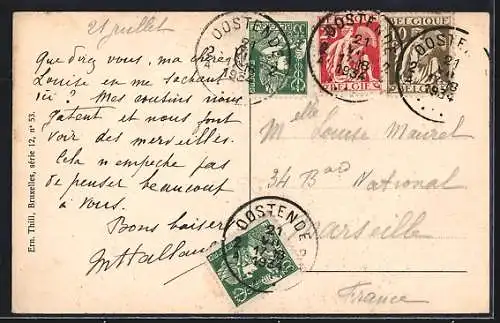 21 Juillet
Que dirig vous, ma chère
Louise en me sachant
ici ? Mes cousins nous
gatent et nous font
voir des merveilles.
Cela n'empeche pas
de penser beaucoup
à vous.
Bons baisers
Ern. Thill, Bruxelles, série 12, nº 53.
OOSTENDE
21
1934
BELGIE
OOSTENDE
21
1934
BELGIQUE
BELGIE
OOSTENDE
21
1934
Mlle Louise Maurel
34 Bard National
Marseille
France
OOSTENDE
21
1934